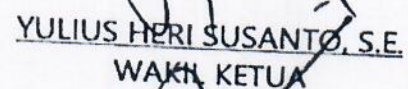 YULIUS HERI SUSANTO, S.E.
WAKIL KETUA